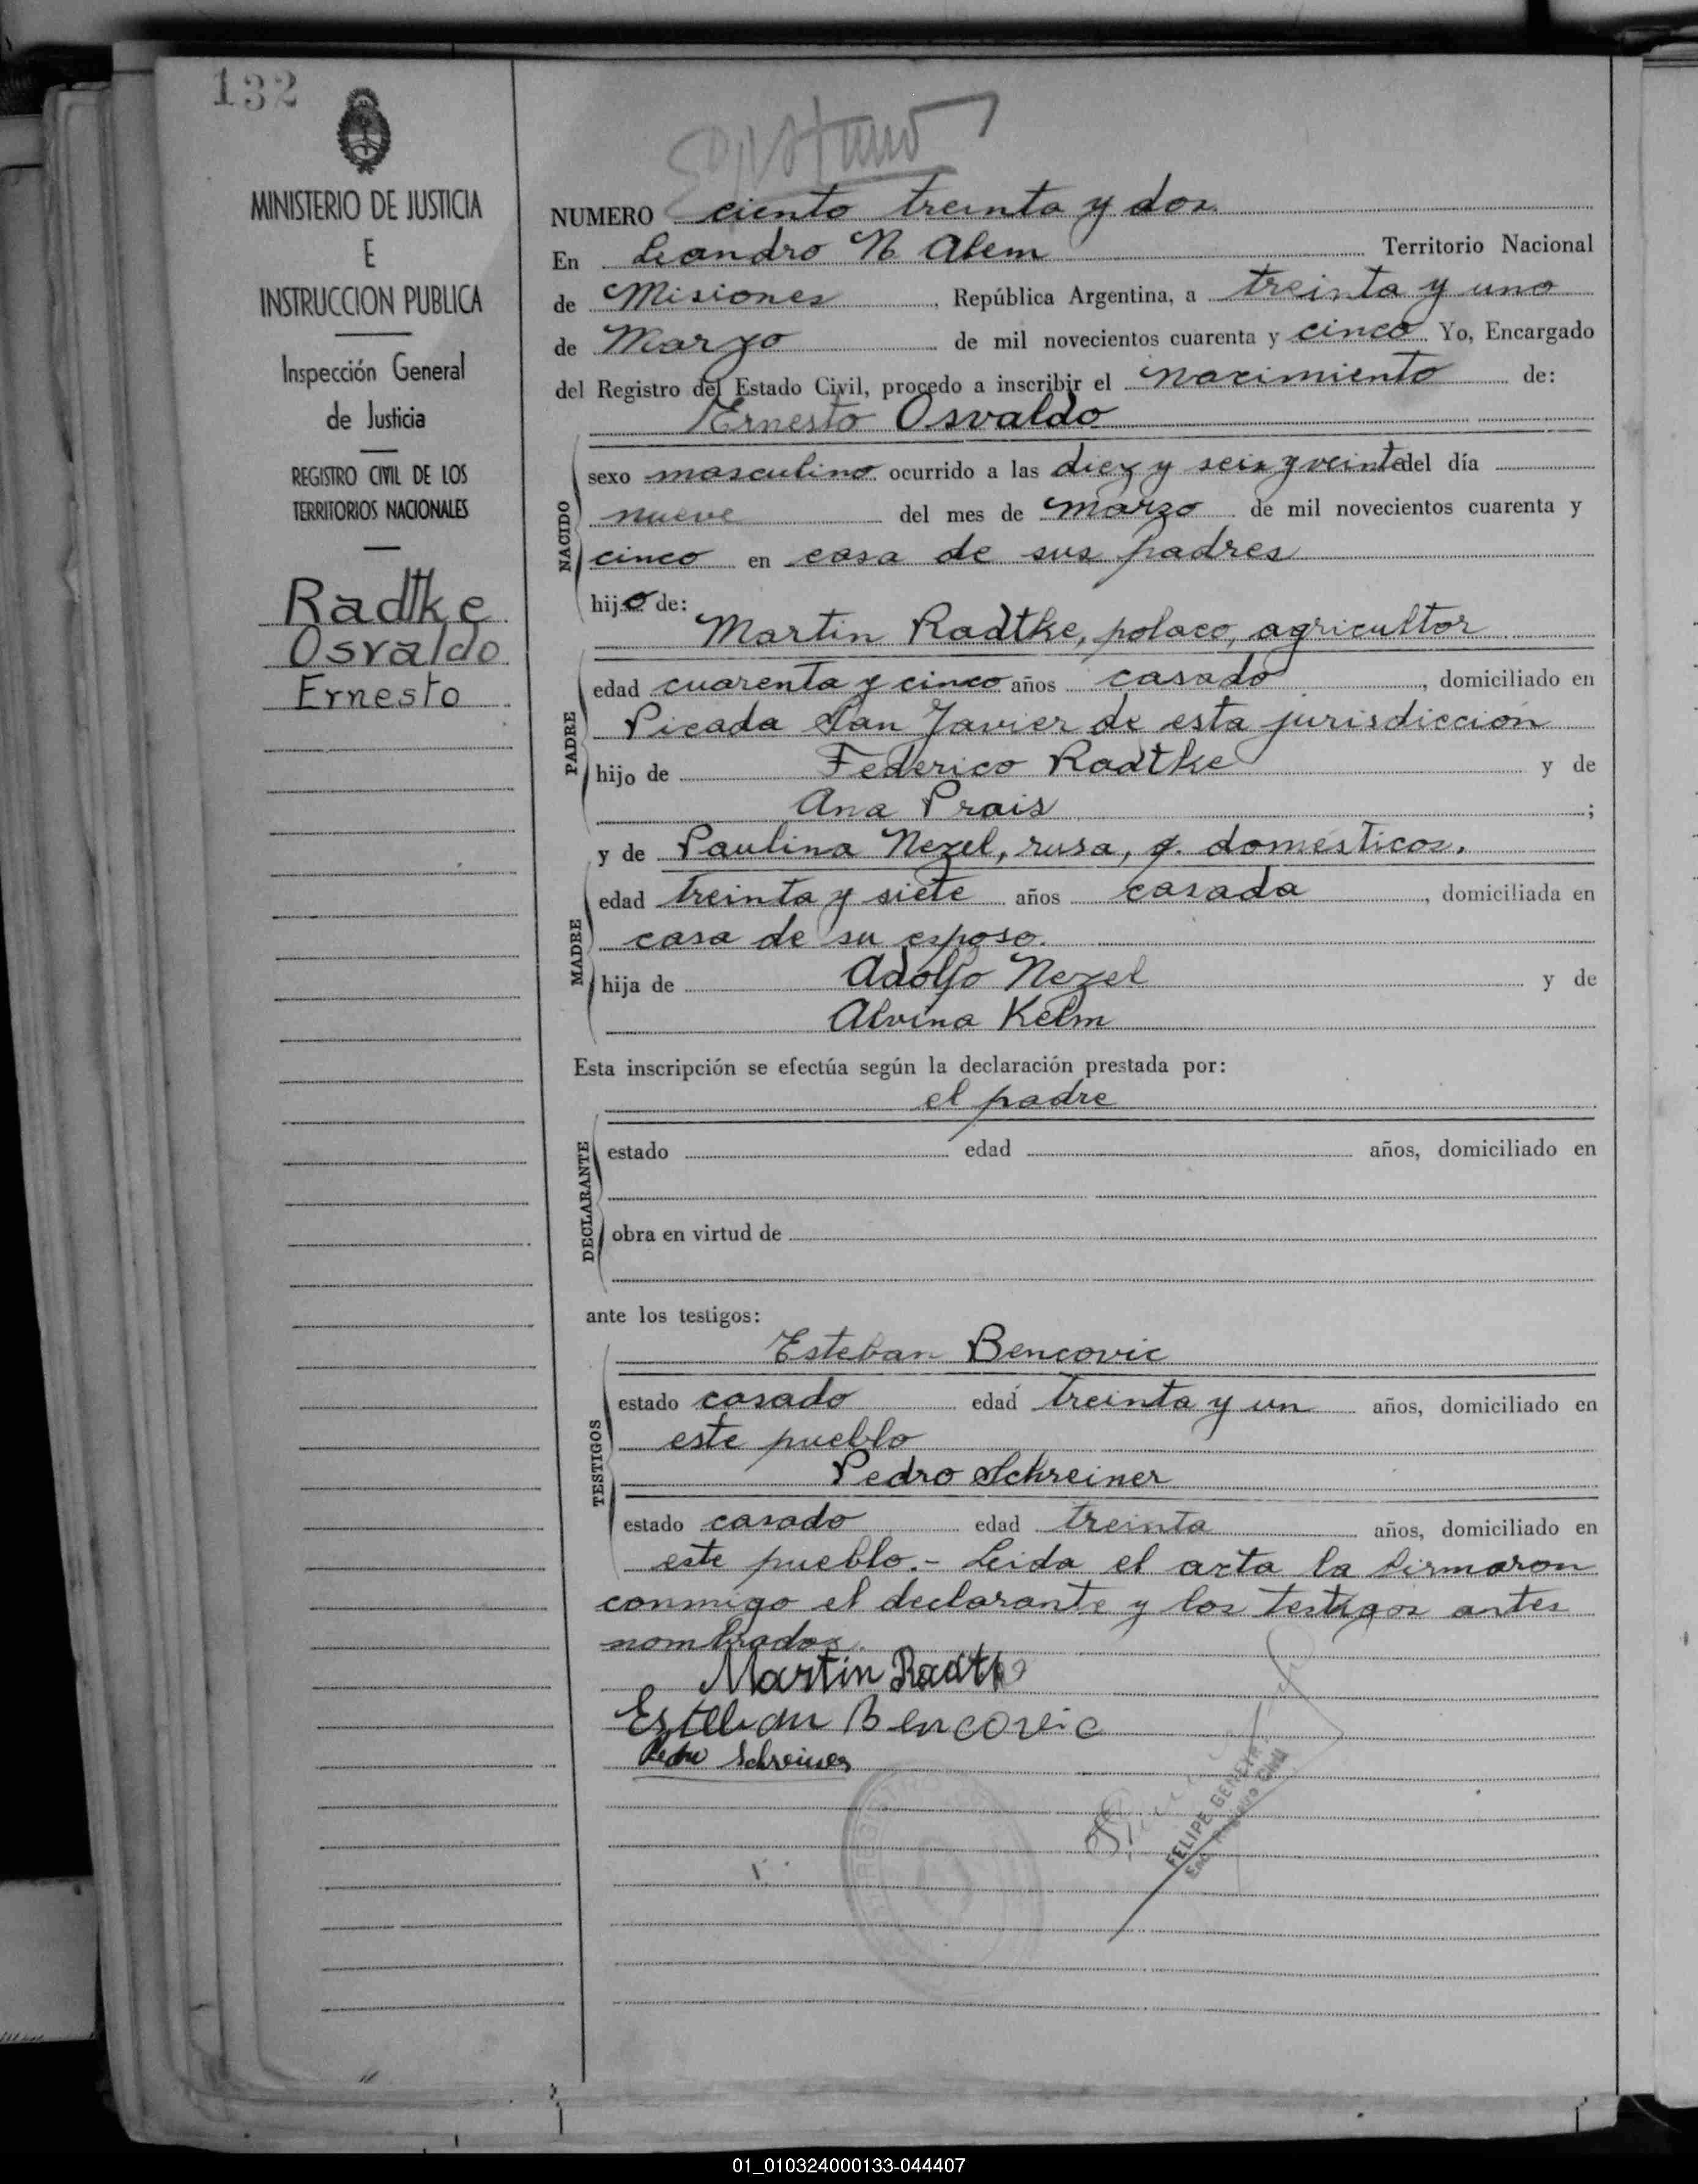 132
MINISTERIO DE JUSTICIA
E
INSTRUCCION PUBLICA
Inspección General
de Justicia
REGISTRO CIVIL DE LOS
TERRITORIOS NACIONALES
Radtke
Osvaldo
Ernesto
NUMERO ciento treinta y dos
En Leandro N Alem Territorio Nacional
de Misiones, República Argentina, a treinta y uno
de Marzo de mil novecientos cuarenta y cinco Yo, Encargado
del Registro del Estado Civil, procedo a inscribir el nacimiento de:
Ernesto Osvaldo
NACIDO
sexo masculino ocurrido a las diez y seis y veinte del día
nueve del mes de marzo de mil novecientos cuarenta y
cinco en casa de sus padres
hijo de:
Martin Radtke, polaco, agricultor
PADRE
edad cuarenta y cinco años casado, domiciliado en
Picada San Javier de esta jurisdicción
hijo de Federico Radtke y de
Ana Prais;
y de Paulina Nezel, rusa, q. domésticos.
MADRE
edad treinta y siete años casada, domiciliada en
casa de su esposo.
hija de Adolfo Nezel y de
Alvina Kelm
Esta inscripción se efectúa según la declaración prestada por:
el padre
DECLARANTE
estado edad años, domiciliado en
obra en virtud de
ante los testigos:
Esteban Bencovic
TESTIGOS
estado casado edad treinta y un años, domiciliado en
este pueblo
Pedro Schreiner
estado casado edad treinta años, domiciliado en
este pueblo.- Leida el acta la firmaron
conmigo el declarante y los testigos antes
nombrados.
Martin Radtke
Esteban Bencovic
Pedro Schreiner
REGISTRO
FELIPE
Enc. Registro Civil
01_010324000133-044407